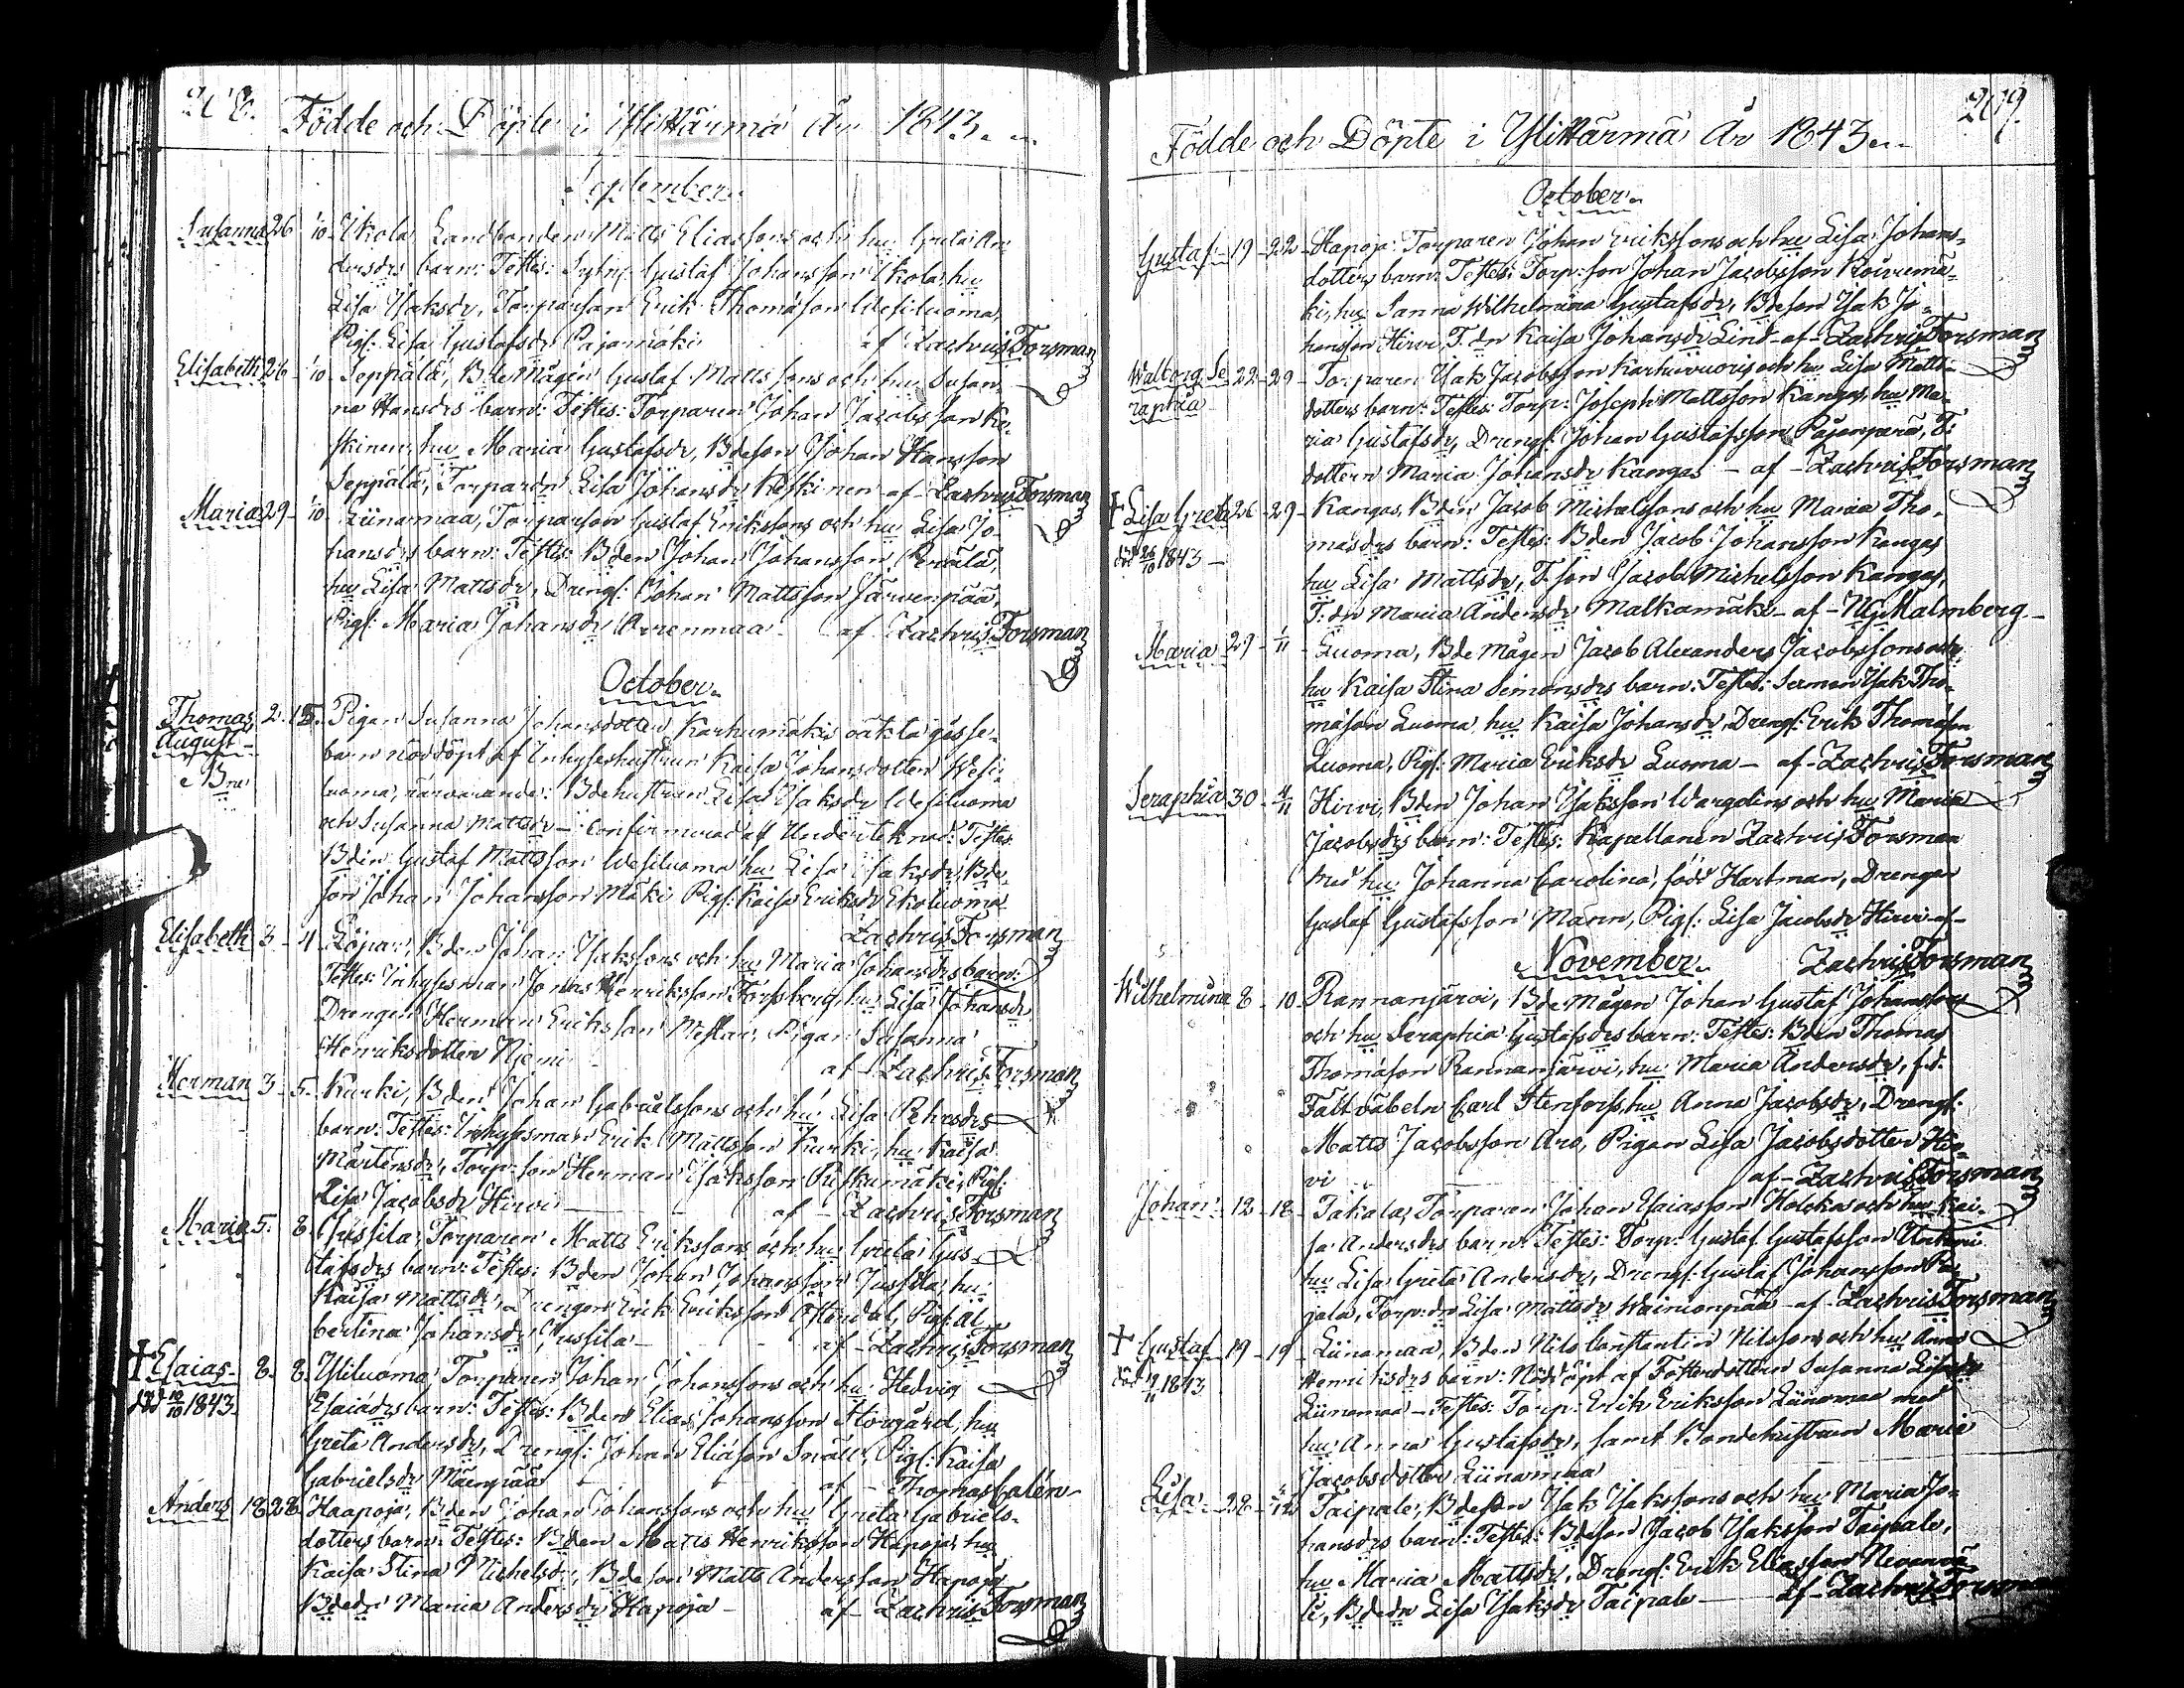 208. Födde och Döpte i Ylihärmä År 1843.
September.
Susanna 26 1/10 Ikola Landbonden Matts Eliassons och hu Greta An-
dersdrs barn: Testes: Sytn: Gustaf Johansson Ikola, hu
Lisa Isaksdr, Torparson Erik Thomasson Wesiluoma,
Pig: Lisa Gustafsdr Pajamäki af Zachris Forsman
Elisabeth 26 1/10 Seppälä, Bde Mågen Gustaf Mattssons och hu Susan-
na Hansdrs barn: Testes: Torparen Johan Jacobsson Ke-
skinen, hu Maria Gustafsdr, Bdeson Johan Hansson
Seppälä, Torpardr Lisa Johansdr Keskinen af Zachris Forsman
Maria 29 1/10 Liinamaa, Torparson Gustaf Erikssons och hu Lisa Jo-
hansdrs barn: Testes: Bden Johan Johansson
hu Lisa Mattsdr, Dreng: Johan Mattsson Järwenpää,
Pig: Maria Johansdr af Zachris Forsman
October.
Thomas August 2 15 Pigan Susanna Johansdotter Karhumäkis oäkta gosse-
barn nöddöpt af Inhyseshustrun Kaisa Johansdotter Wesi-
luoma, närvarande: Bdehustrun Lisa Isaksdr Wesiluoma
och Susanna Mattsdr – Confirmerad af Undertecknad: Testes
Bden Gustaf Mattsson Wesiluoma hu Lisa Isaksdr, Bde-
son Johan Johansson Mäki Pig: Kaisa Eriksdr Ekoluoma
Zachris Forsman
Elisabeth 3 4 Löpar, Bden Johan Isakssons och hu Maria Johansdrs barn:
Testes: Inhysesman Jonas Henriksson Forssberg, hu Lisa Johansdr
Drengen Herman Eriksson Pigan Susanna
Henriksdotter Niemi af Zachris Forsman
Herman 3 5 Kurki, Bden Johan Gabrielssons och hu Lisa Pehrsdrs
barn: Testes: Inhysesman Erik Mattsson Kurki, hu Kaisa
Mårtensdr, Torp:son Herman Isaksson Pig:
Lisa Jacobsdr Hirvi af Zachris Forsman
Maria 5 8 Jussila, Torparen Matts Erikssons och hu Greta Gus-
tafsdrs barn: Testes: Bden Johan Johansson Jussila, hu
Kaisa Mattsdr, Drengen Erik Eriksson Pig: Al-
bertina Johansdr Jussila af Zachris Forsman
† Esaias 8 8 Yliluoma, Torparen Johan Johanssons och hu Hedvig
död 10/10 1843. Esaiadrs barn: Testes: Bden Elias Johansson Storgård, hu
Greta Andersdr, Dreng: Johan Eliasson Snäll, Pig: Kaisa
Gabrielsdr Mäenpää af Thomas Calén
Anders 18 28 Haapoja, Bden Johan Johanssons och hu Greta Gabriels-
dotters barn: Testes: Bden Matts Henriksson Hapoja, hu
Kaisa Stina Michelsdr, Bdeson Matts Andersson Hapoja
Bdedr Maria Andersdr Hapoja af Zachris Forsman
209.
Födde och Döpte i Ylihärmä År 1843
October.
Gustaf 19 22 Hapoja Torparen Johan Erikssons och hu Lisa Johans-
dotters barn: Testes: Torp:son Johan Jacobsson Koivumä-
ki, hu Sanna Wilhelmina Gustafsdr, Bdeson Isak Jo-
hansson Hirvi, T.dr Kaisa Johansdr Lind af Zachris Forsman
Walborg Se- 22 29 Torparen Isak Jacobsson Karhuvuoris och hu Lisa Matts-
raphia dotters barn: Testes: Torp: Joseph Mattsson Kangas, hu Ma-
ria Gustafsdr, Dreng: Johan Gustafsson Pajanperä, T:
dottern Maria Johansdr Kangas – af Zachris Forsman
† Lisa Greta 26 29 Kangas, Bden Jacob Michelssons och hu Maria Tho-
död 26/10 1843 masdrs barn: Testes: Bden Jacob Johansson Kangas
hu Lisa Mattsdr, T.son Jacob Michelsson Kangas,
T:dr Maria Andersdr Malkamäki – af N.G. Malmberg
Maria 29 1/11 Luoma, Bde Mågen Jacob Alexander Jacobssons och
hu Kaisa Stina Simonsdrs barn: Testes: Sexman Isak Tho-
masson Luoma, hu Kaisa Johansdr, Dreng: Erik Thomasson
Luoma, Pig: Maria Eriksdr Luoma – af Zachris Forsman
Seraphia 30 4/11 Hirvi, Bden Johan Isaksson Wargelins och hu Maria
Jacobsdrs barn: Testes: Kapellanen Zachris Forsman
med hu Johanna Carolina, född Hartman, Drengen
Gustaf Gustafsson Mann, Pig: Lisa Jacobsdr Hirvi af
November. Zachris Forsman
Wilhelmina 8 10 Rannanjärvi, Bde Mågen Johan Gustaf Johanssons
och hu Seraphia Gustafsdrs barn: Testes: Bden Thomas
Thomasson Rannanjärvi, hu Maria Andersdr, f.d.
Fältväbeln Carl Stenfors, hu Anna Jacobsdr, Dreng:
Matts Jacobsson Aro, Pigan Lisa Jacobsdotter Hir-
vi af Zachris Forsman
Johan 12 18 Takala, Torparen Johan Esaiasson Holckas och hu Kai-
sa Andersdrs barn: Testes: Torp: Gustaf Gustafsson
hu Lisa Greta Andersdr, Dreng: Gustaf Johansson Pa-
jala, Torp:dr Lisa Mattsdr Wainionpää – af Zachris Forsman
† Gustaf 19 19 Liinamaa, Bden Nils Constantin Nilssons och hu Anna
död 19/11 1843 Henriksdrs barn: Nöddöpt af Fosterdottern Susanna
Liinamaa – Testes: Torp: Erik Eriksson Liinamaa med
hu Anna Gustafsdr, samt Bondehustrun Maria
Jacobsdotter Liinamaa
Lisa 28 Taipale, Bdeson Isak Isakssons och hu Maria Jo-
hansdrs barn: Testes: Bdeson Jacob Isaksson Taipale,
hu Maria Mattsdr, Dreng: Erik Eliasson
Bdedr Lisa Isaksdr Taipale – af Zachris Forsman